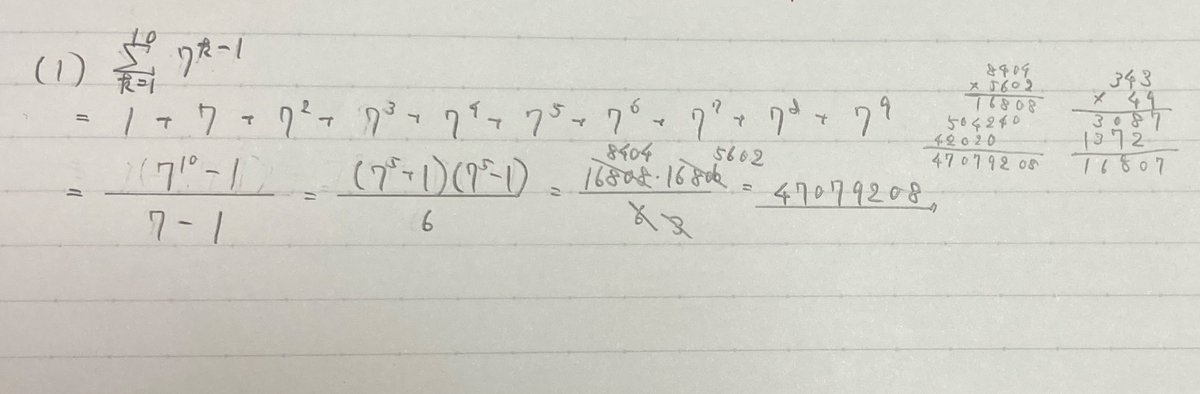 (1) \sum_{k=1}^{10} 7^{k-1}
= 1 + 7 + 7^2 + 7^3 + 7^4 + 7^5 + 7^6 + 7^7 + 7^8 + 7^9
= \frac{(7^{10}-1)}{7-1} = \frac{(7^5+1)(7^5-1)}{6} = \frac{16808 \cdot 16806}{6} = 47079208
8404 5602
3
8404
× 5602
16808
504240
42020
47079208
343
× 49
3087
1372
16807